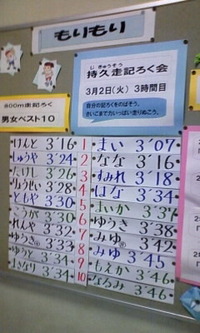 もりもり
じきゅうそう かい
持久走記ろく会
3月2日(火)3時間目
自分の記ろくをのばそう。
さいごまで力いっぱい走りぬこう。
800m走記ろく
男女ベスト10
けんと 3'16 1 まい 3'07
しゅうや 3'24 2 なな 3'16
たけし 3'26 3 すみれ 3'18
3'28 4 はな 3'34
ともや 3'30 5 まいか 3'37
こうが 3'30 6 ゆうき 3'38
れんや 3'32 7 みゆ 3'42
ゆうき 3'33 8 みゆ 3'45
ゆうと 3'34 9 もえか 3'46
3'34 10 なるみ 3'46